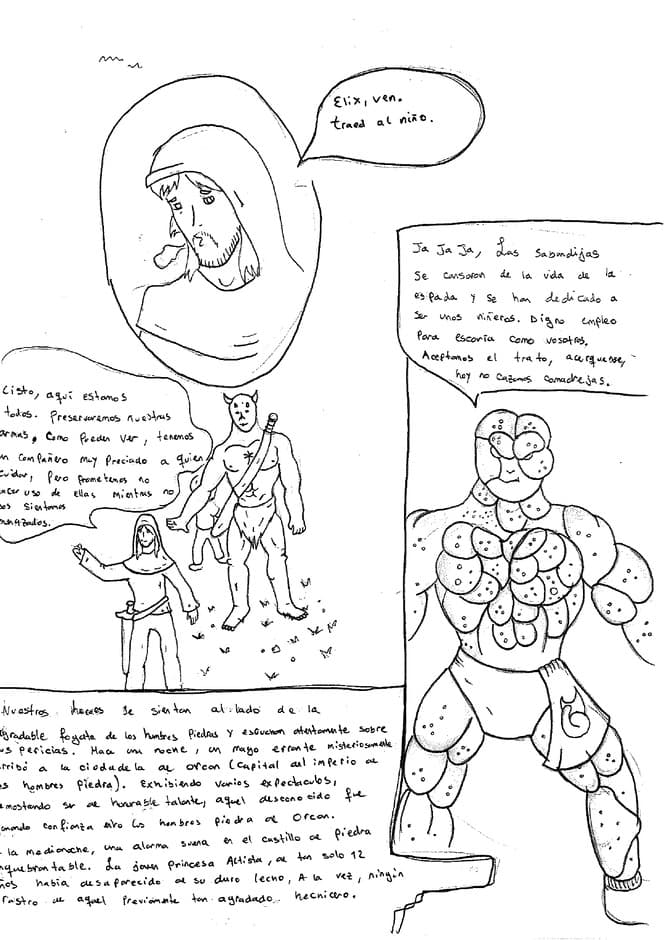 Elix, ven.
traed al niño.
Ja Ja Ja, Las sabandijas
se cansaron de la vida de la
espada y se han dedicado a
ser unos niñeros. Digno empleo
para escoria como vosotros.
Aceptamos el trato, acerquense,
hoy no cazamos comadrejas.
Listo, aquí estamos
todos. Preservaremos nuestras
armas, como pueden ver, tenemos
un compañero muy preciado a quien
cuidar, pero prometemos no
hacer uso de ellas mientras no
nos sintamos
Nuestros heroes se sientan al lado de la
agradable fogata de los hombres Piedras y escuchan atentamente sobre
sus pericias. Hace una noche, un mago errante misteriosamente
arribó a la ciudadela de orcon (capital del imperio de
los hombres piedra). Exhibiendo varios espectaculos,
demostrando ser de honorable talante, aquel desconocido fue
tomando confianza entre los hombres piedra de Orcon.
A la medianoche, una alarma suena en el castillo de piedra
inquebrantable. La joven Princesa Altista, de tan solo 12
años había desaparecido de su duro lecho, A la vez, ningún
rastro de aquel previamente tan agradado hechicero.